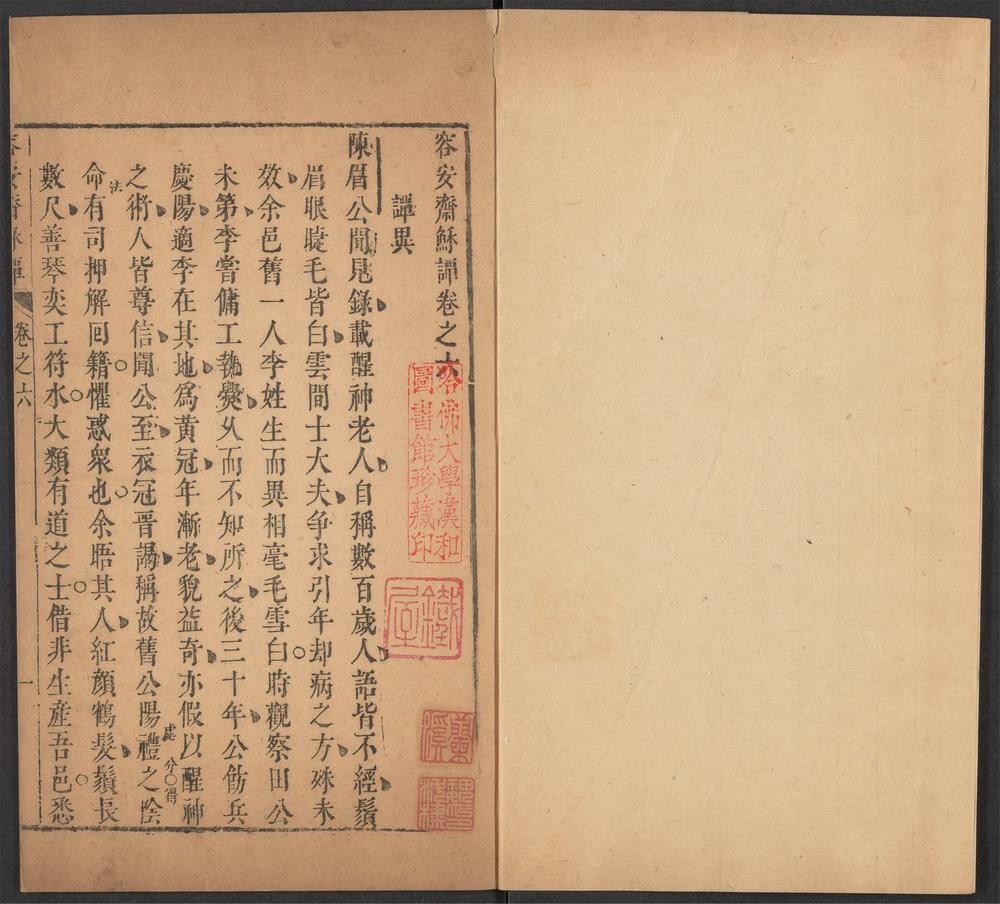 容安齋穌譚卷之六
譚異
陳眉公聞見錄載醒神老人自稱數百歲人語皆不經鬚
眉眼睫毛皆白雲間士大夫争求引年却病之方殊未
效余邑舊一人李姓生而異相毫毛雪白時觀察田公
未第李嘗傭工執爨久而不知所之後三十年公飭兵
慶陽適李在其地為黃冠年漸老貌益奇亦假以醒神
之術人皆尊信聞公至衣冠晋謁稱故舊公陽禮之陰
處分得
命有司押解回籍懼惑衆也余晤其人紅顏鶴髮鬚長
法
數尺善琴奕工符水大類有道之士借非生産吾邑悉
卷之六
一
哈佛大學漢和
圖書館珍藏印